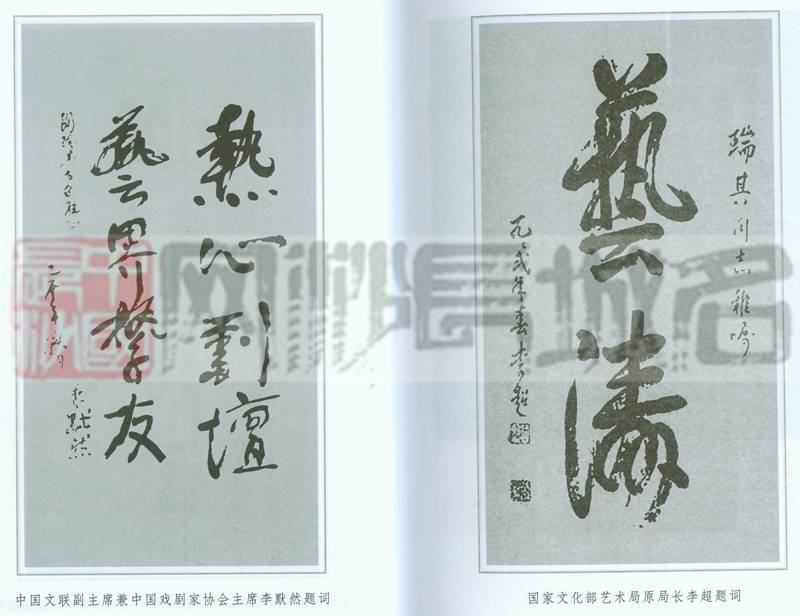 熱心劇壇
藝界摯友
李默然
中国文联副主席兼中国戏剧家协会主席李默然题词
瑞其同志雅嘱
藝
年春李超
国家文化部艺术局原局长李超题词
名城張掖网